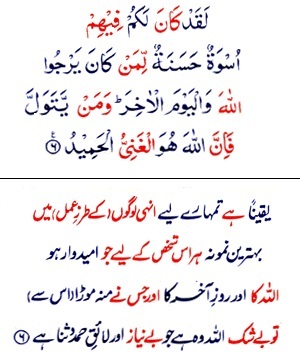 لَقَدْ كَانَ لَكُمْ فِيْهِمْ
اُسْوَةٌ حَسَنَةٌ لِّمَنْ كَانَ يَرْجُوا
اللّٰهَ وَالْيَوْمَ الْاٰخِرَ ؕ وَمَنْ يَّتَوَلَّ
فَاِنَّ اللّٰهَ هُوَ الْغَنِىُّ الْحَمِيْدُ ﴿۶﴾
یقیناً ہے تمہارے لیے انہی لوگوں (کے طرزِ عمل) میں
بہترین نمونہ ہر اس شخص کے لیے جو امیدوار ہو
اللہ کا اور روزِ آخر کا اور جس نے منہ موڑا (اس سے)
تو بے شک اللہ وہ ہے جو بے نیاز اور لائقِ حمد و ثنا ہے ﴿۶﴾